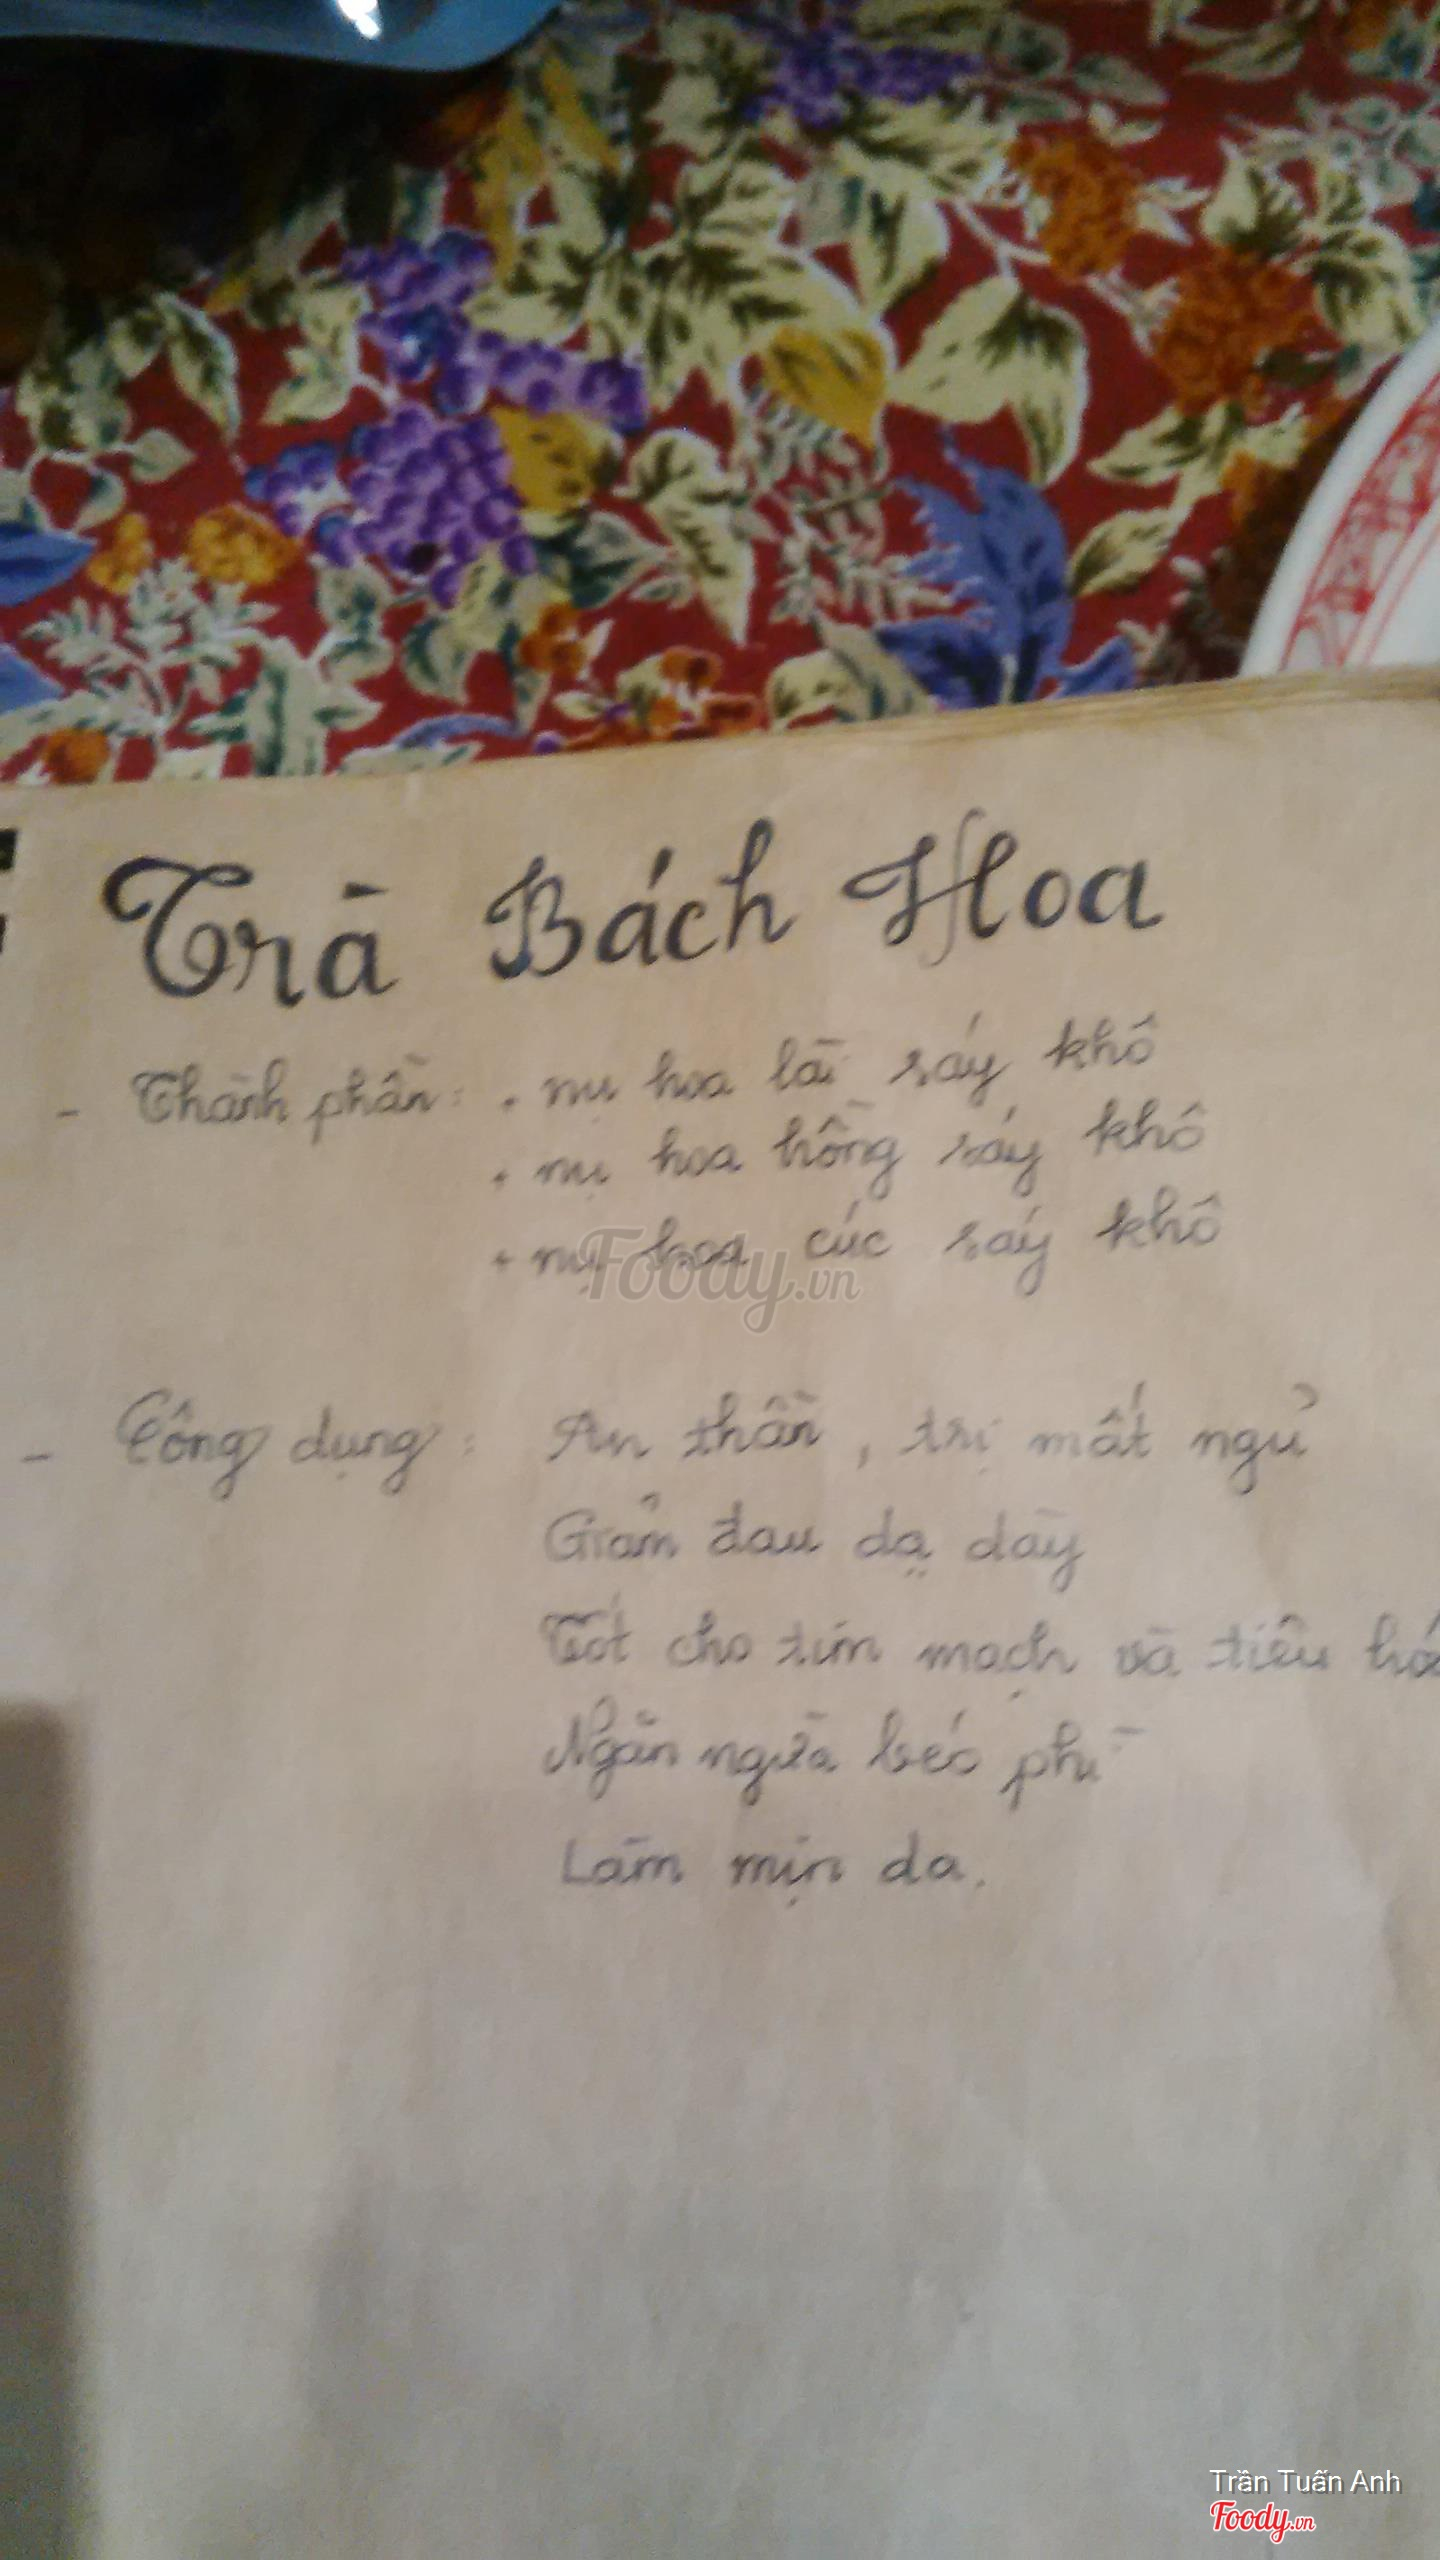 Trà Bách Hoa
- Thành phần: + nụ hoa lài sáy khô
+ nụ hoa hồng sáy khô
+ nụ hoa cúc sáy khô
- Công dụng: An thần, trị mất ngủ
Giảm đau dạ dày
Tốt cho tim mạch và tiêu hóa
Ngăn ngừa béo phì
Làm mịn da.
Foody.vn
Trần Tuấn Anh
Foody.vn